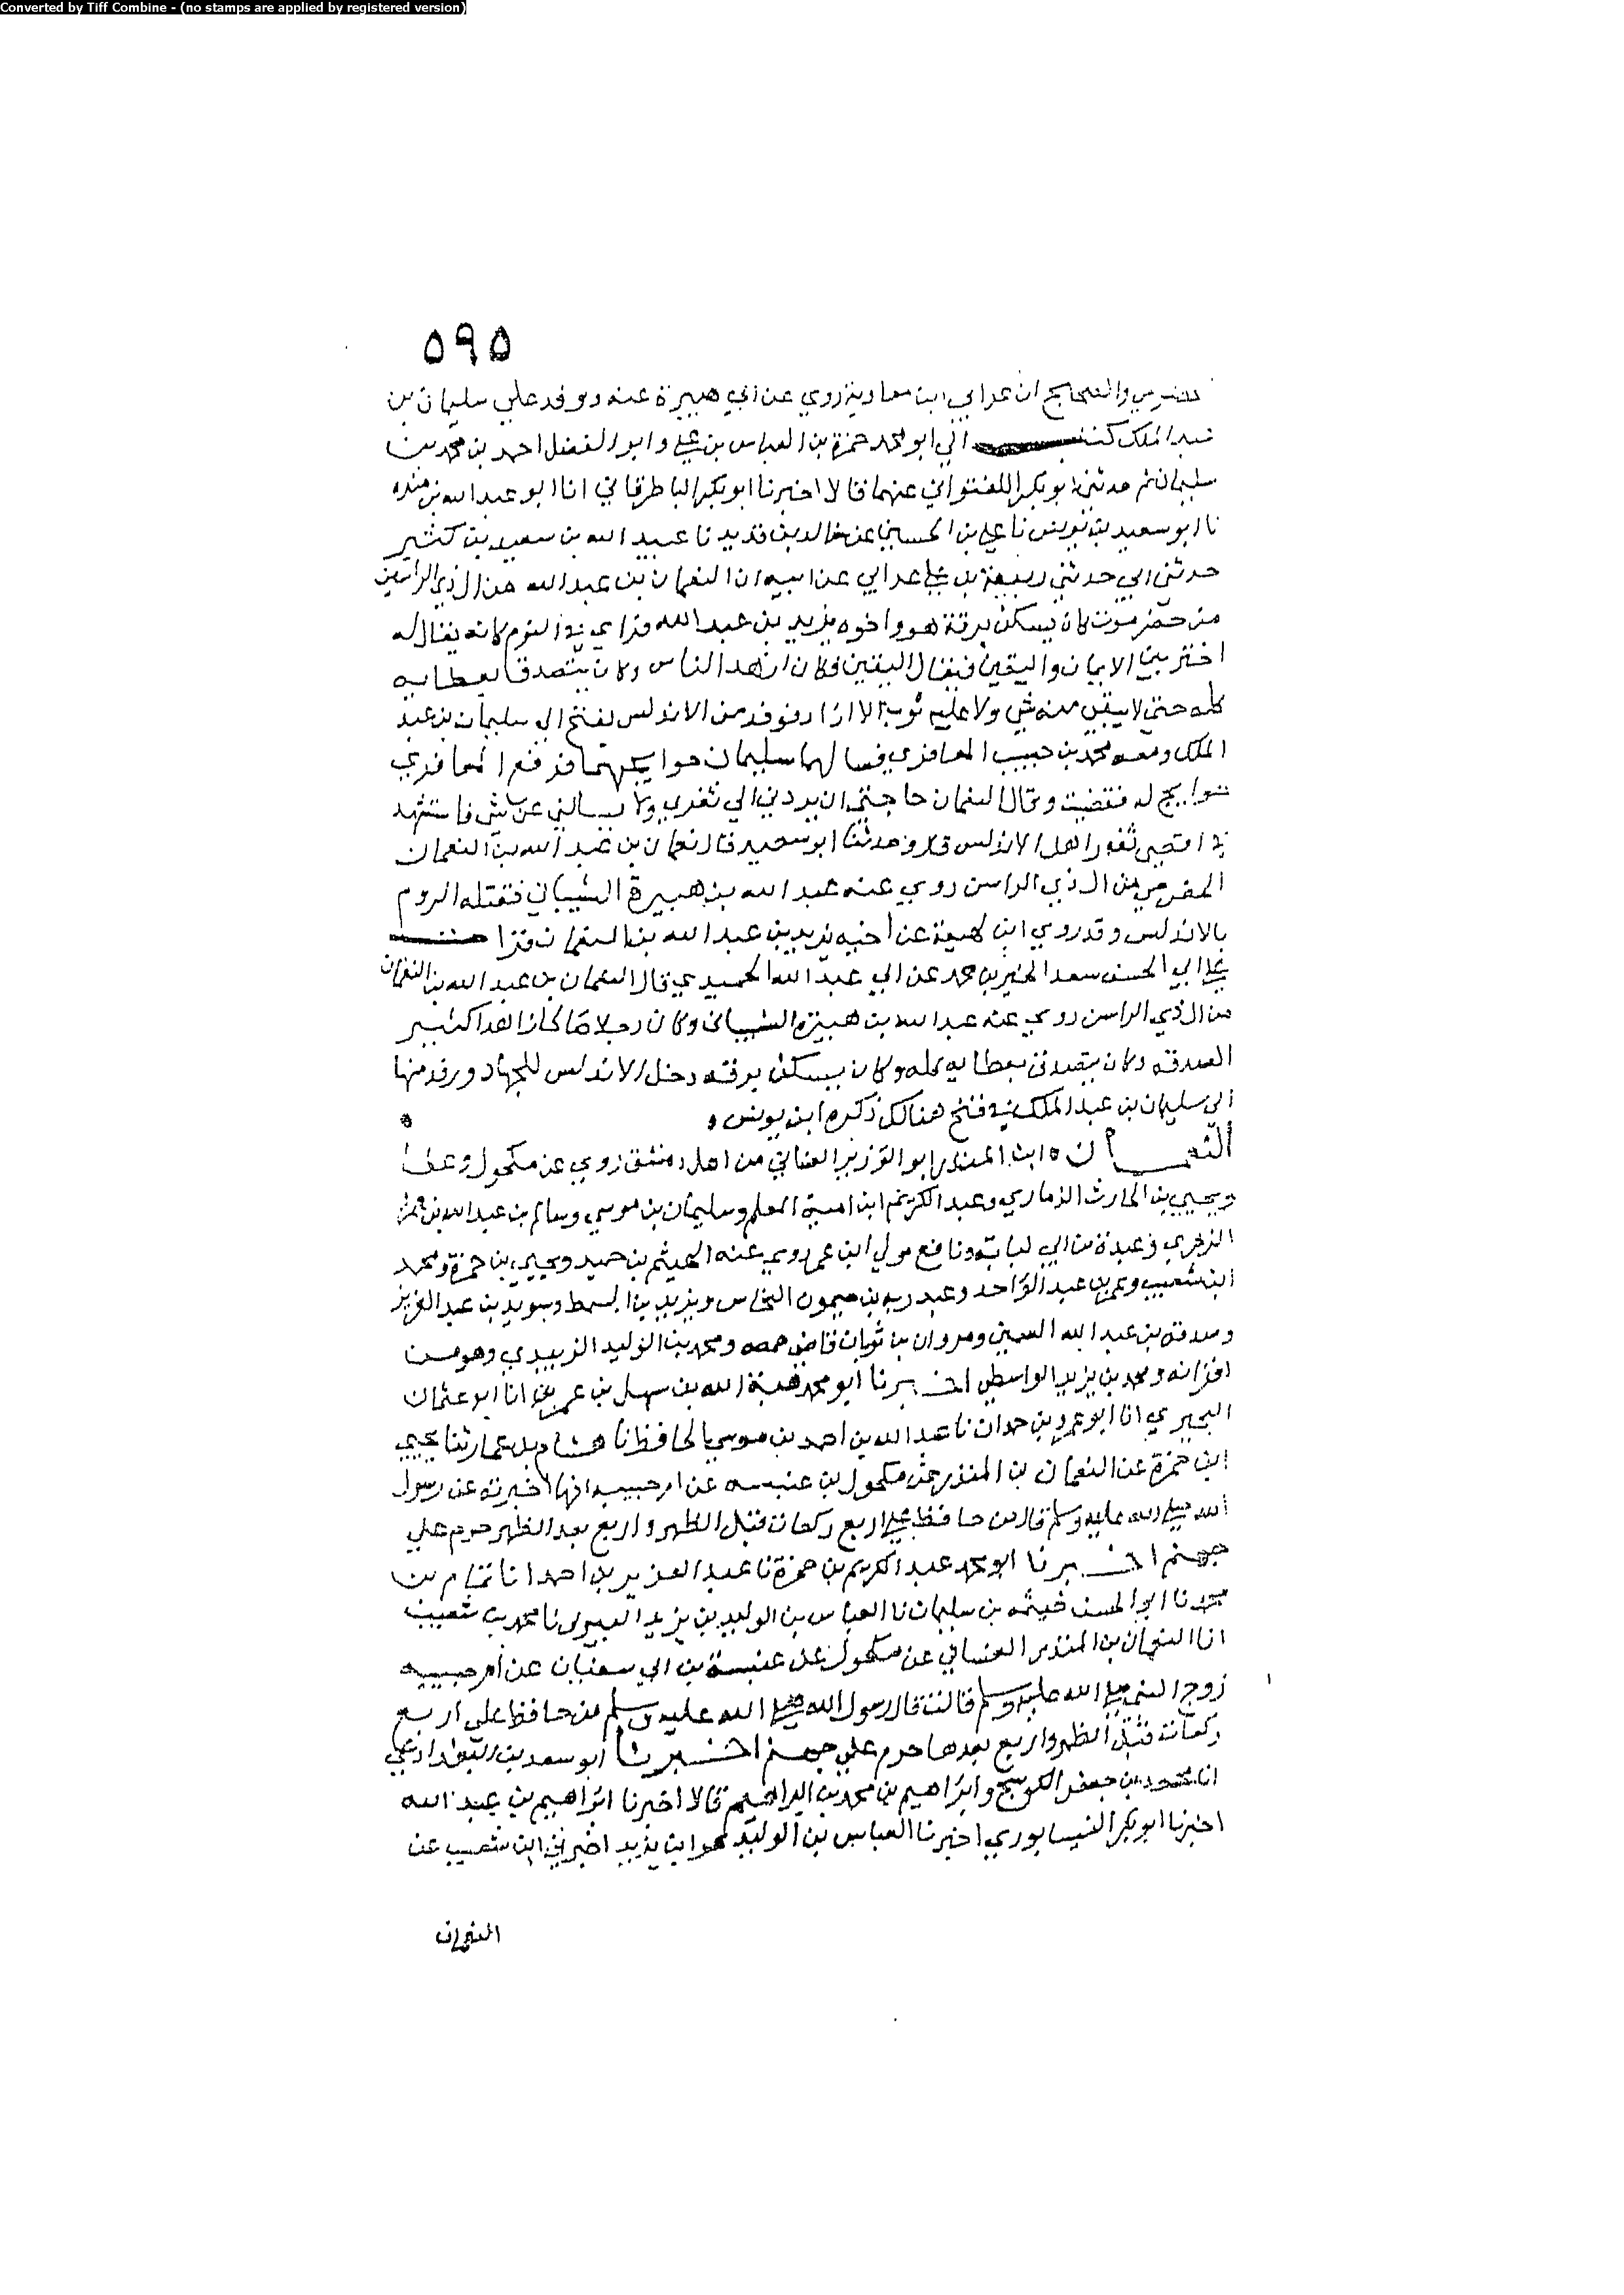 Converted by Tiff Combine - (no stamps are applied by registered version)
٥٩٥
والصحابح ان عمرابي ابن معاوية روي عن ابي هبيرة عنه ووفد علي سليمان بن
عبد الملك كتب الي ابو محمد حمزة بن العباس بن علي وابو الفضل احمد بن محمد بن
سليمان ثم حدثني ابو بكر اللفتواني عنهما قالا اخبرنا ابو بكر الباطرقاني انا ابو عبد الله بن منده
نا ابو سعيد بن يونس نا علي بن الحسين عن خالد بن قديد نا عبيد الله بن سعيد بن كثير
حدثني ابي حدثني ربيعة بن عن ابيه ان النعمان بن عبد الله من الذي الراسين
من حضرموت كان يسكن برقة هو واخوه يزيد بن عبد الله فراي في النوم كانه يقال له
اختر بين الايمان واليقين فقال اليقين فكان ازهد الناس وكان يتصدق بعطايه
كله حتي لا يبقي منه شي ولا عليه ثوب الا ازار فوفد من الاندلس بفتح الي سليمان بن عبد
الملك ومعه محمد بن حبيب المعافري فسالهما سليمان حوايجهما فرفع المعافري
حوايج له فقضيت وقال النعمان حاجتي ان يردني الي ثغري ولا يسالني عن شي فاستشهد
في اقصي ثغور اهل الاندلس قال وحدثنا ابو سعيد قال نعمان بن عبد الله بن النعمان
الحضرمي من الذي الراسن روي عنه عبد الله بن هبيرة الشيباني فقتله الروم
بالاندلس وقد روي ابن لهيعة عن اخيه يزيد بن عبد الله بن النعمان قرا
علي ابي الحسن سعد الخير بن محمد عن ابي عبد الله الحميدي قال النعمان بن عبد الله بن النعمان
من الذي الراسن روي عنه عبد الله بن هبيرة الشيباني وكان رجلا صالحا زاهدا كثير
الصدقه وكان يتصدق بعطايه كله وكان يسكن برقه دخل الاندلس للجهاد ورفد منها
الي سليمان بن عبد الملك في فتح هنالك ذكره ابن يونس ٥
النعمان ٥ ابن المنذر ابو الوزير الغساني من اهل دمشق روي عن مكحول وعطا
ويحيي بن الحارث الذماري وعبد الكريم ابن امية المعلم وسليمان بن موسي وسالم بن عبد الله بن عمر
الزهري وعبدة بن ابي لبابة ونافع مولي ابن عمر روي عنه الهيثم بن حميد ويحيي بن حمزة ومحمد
ابن شعيب وعمر بن عبد الواحد وعبد ربه بن ميمون النحاس ويزيد بن السمط وسويد بن عبد العزيز
وصدقه بن عبد الله السمين ومروان بن ثوبان قاضي حمص ومحمد بن الوليد الزبيدي وهو من
اقرانه ومحمد بن يزيد الواسطي اخبرنا ابو محمد هبة الله بن سهل بن عمر انا ابو عثمان
البحيري انا ابو عمرو بن حمدان نا عبد الله بن احمد بن موسي الحافظ نا هشام بن عمار ثنا يحيي
ابن حمزة عن النعمان بن المنذر عن مكحول بن عنبسه عن ام حبيبه انها اخبرته عن رسول
الله صلي الله عليه وسلم قال من حافظ علي اربع ركعات قبل الظهر واربع بعد الظهر حرم علي
جهنم اخبرنا ابو محمد عبد الكريم بن حمزة نا عبد العزيز بن احمد انا تمام بن
محمد نا ابو الحسن خيثمه بن سليمان نا العباس بن الوليد بن يزيد البيروتي نا محمد بن شعيب
انا النعمان بن المنذر الغساني عن مكحول عن عنبسة بن ابي سفيان عن ام حبيبه
زوج النبي صلي الله عليه وسلم قالت قال رسول الله صلي الله عليه وسلم من حافظ علي اربع
ركعات قبل الظهر واربع بعدها حرم علي جهنم اخبرنا ابو سعد بن البغدادي
انا محمد بن جعفر الكوسج وابراهيم بن محمد بن ابراهيم قالا اخبرنا ابراهيم بن عبد الله
اخبرنا ابو بكر النيسابوري اخبرنا العباس بن الوليد هو ابن يزيد اخبرني ابن شعيب عن
النعمان